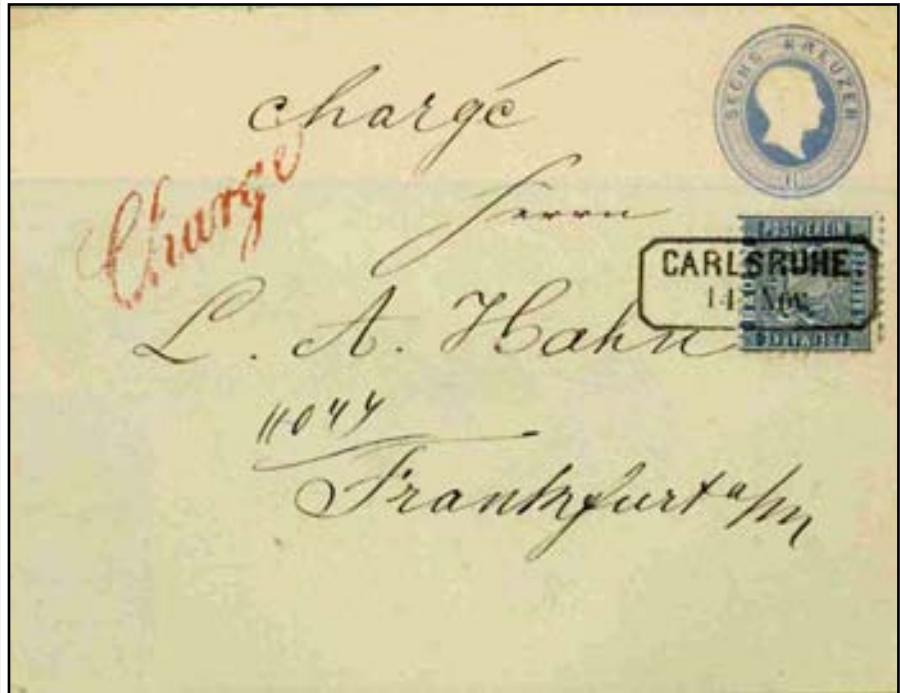 SECHS KREUZER
6
chargé
Chargé
Herrn
POSTVEREIN
CARLSRUHE
14 Nov.
L. A. Hahn
11044
Frankfurt a/m